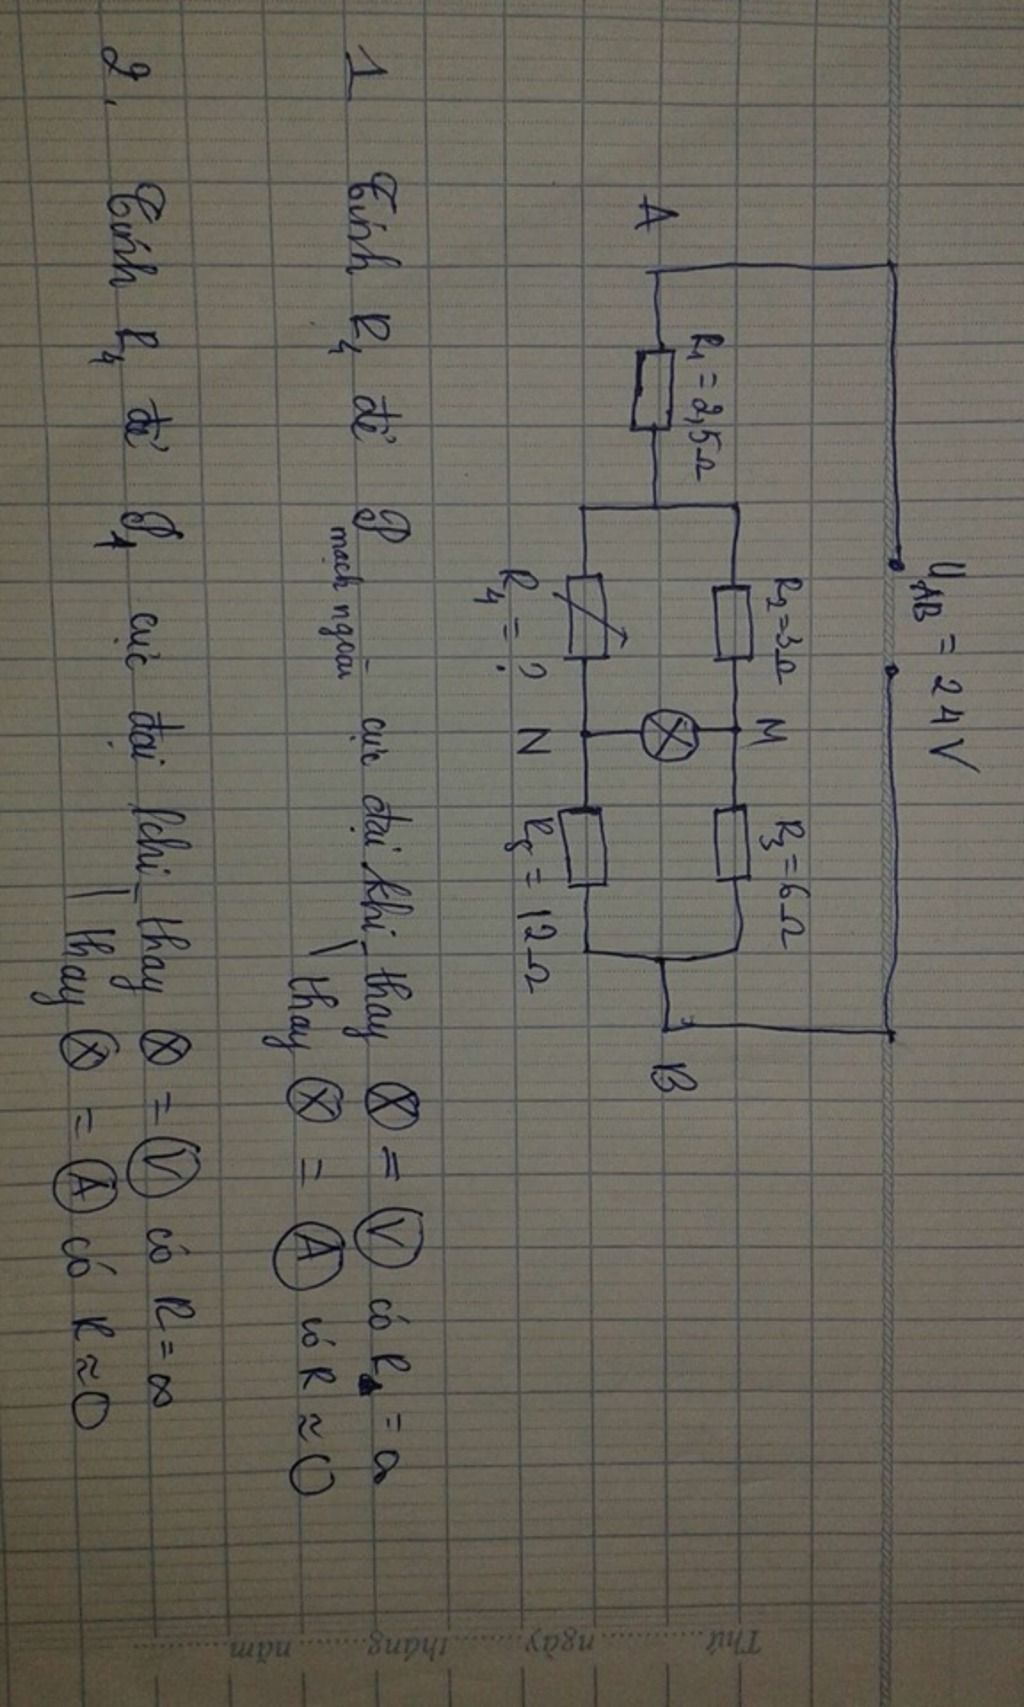 U_AB = 24 V
R₂ = 3Ω
M
R₃ = 6Ω
R₁ = 2,5Ω
A
B
R₄ = ?
N
R₅ = 12Ω
1 Tính R₄ để P mạch ngoài cực đại khi thay ⊗ = Ⓥ có R = ∞
thay ⊗ = Ⓐ có R ≈ 0
2. Tính R₄ để P₄ cực đại khi thay ⊗ = Ⓥ có R = ∞
thay ⊗ = Ⓐ có R ≈ 0
Thứ ........ ngày ........ tháng ........ năm ........